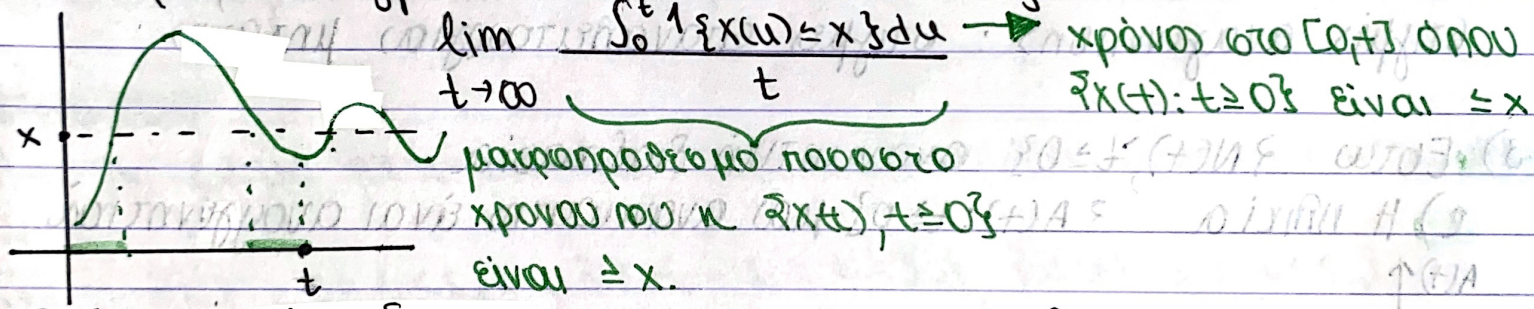 lim ∫₀ᵗ 1{X(u) ≤ x}du → χρόνος στο [0,t] όπου
t→∞ t {X(t): t≥0} είναι ≤ x
x
μακροπροθεσμο ποσοστο
χρονου που η {X(t), t≥0}
είναι ≥ x.
t